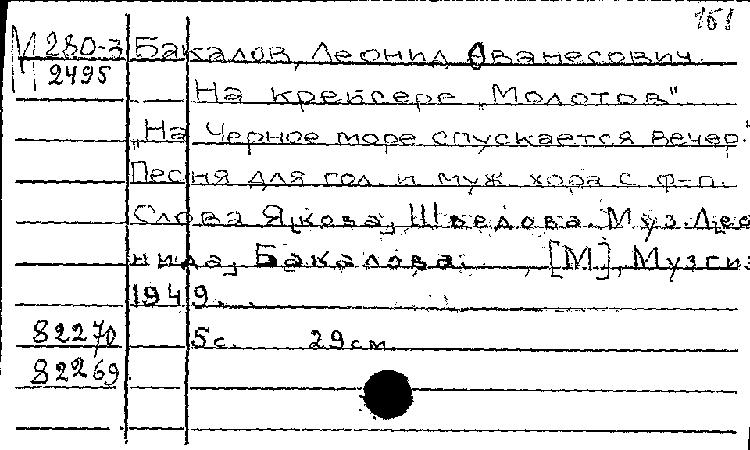 151
М 280-3 Бакалов, Леонид Ованесович.
2495
На крейсере „Молотов"
„На Черное море спускается вечер."
Песня для гол. и муж. хора с ф-п.
Слова Якова, Шведова. Муз. Лео
нида, Бакалова. [М], Музгиз
1949.
82270 5 с. 29 см.
82269